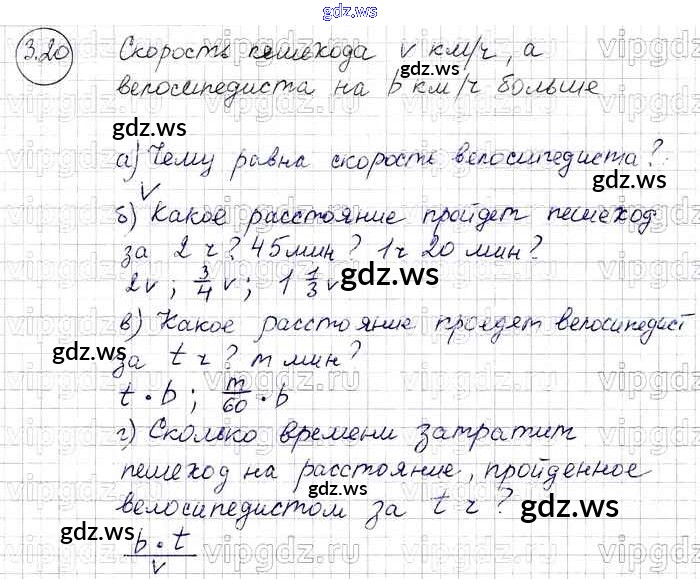 gdz.ws
3.20 Скорость пешехода v км/ч, а
gdz.ws
велосипедиста на b км/ч больше
gdz.ws
а) Чему равна скорость велосипедиста?
v
gdz.ws
б) Какое расстояние пройдет пешеход
за 2 ч? 45 мин? 1 ч 20 мин?
2v; 3/4 v; 1 1/3 v
gdz.ws
в) Какое расстояние проедет велосипедист
gdz.ws
за t ч? m мин?
t · b; m/60 · b
gdz.ws
г) Сколько времени затратит
пешеход на расстояние, пройденное
gdz.ws
велосипедистом за t ч?
gdz.ws
b · t / v
vipgdz.ru